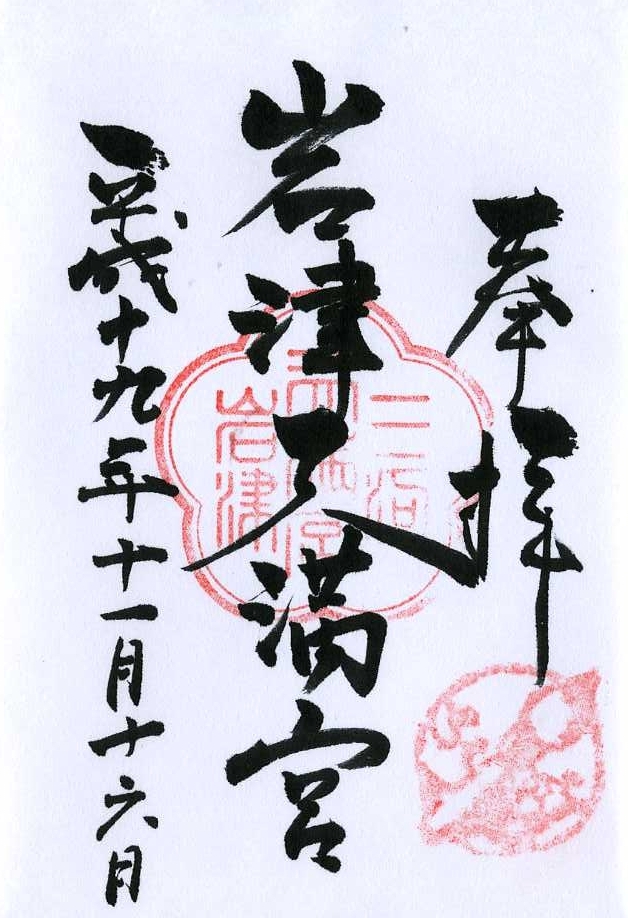 奉拝
岩津天満宮
平成十九年十一月十六日
三河
岩津